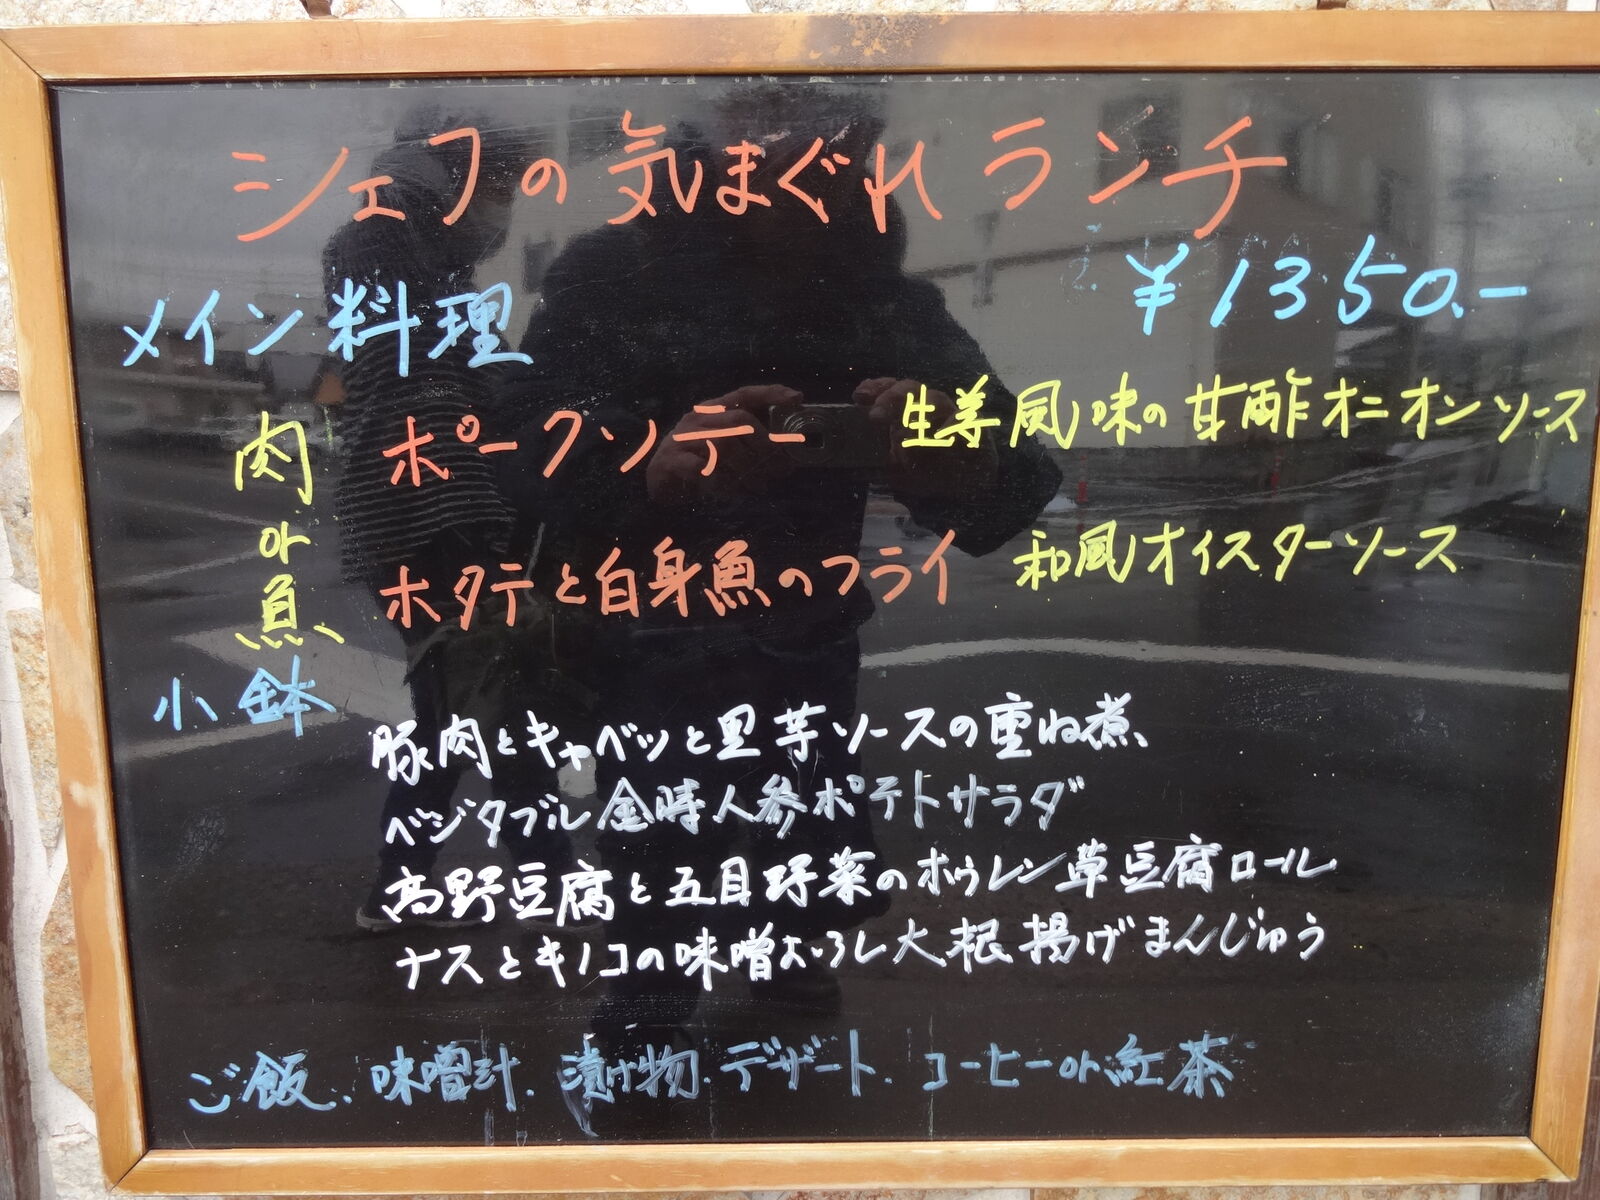 シェフの気まぐれランチ
¥1350.-
メイン料理
肉 ポークソテー 生姜風味の甘酢オニオンソース
or
魚 ホタテと白身魚のフライ 和風オイスターソース
小鉢
豚肉とキャベツと里芋ソースの重ね煮
ベジタブル金時人参ポテトサラダ
高野豆腐と五目野菜のホウレン草豆腐ロール
ナスとキノコの味噌おろし大根揚げまんじゅう
ご飯.味噌汁.漬け物.デザート.コーヒーor紅茶